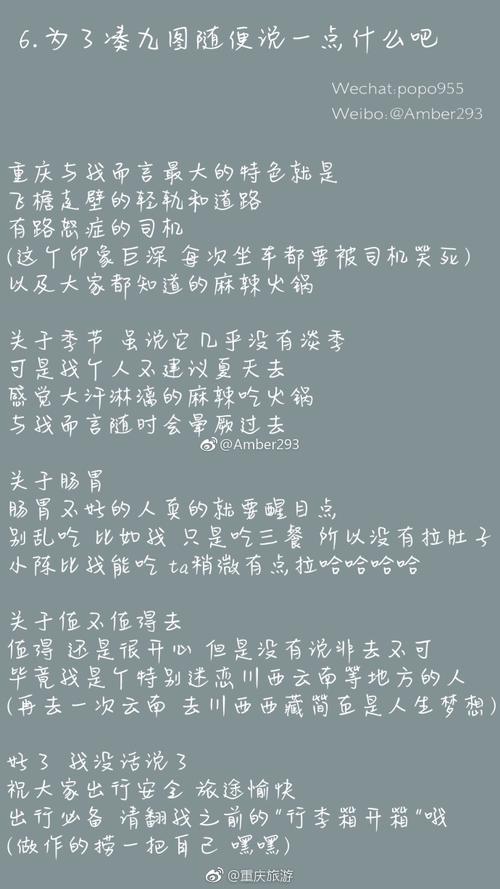 6.为了凑九图随便说一点什么吧
Wechat:popo955
Weibo:@Amber293
重庆与我而言最大的特色就是
飞檐走壁的轻轨和道路
有路怒症的司机
(这个印象巨深 每次坐车都要被司机笑死)
以及大家都知道的麻辣火锅
关于季节 虽说它几乎没有淡季
可是我个人不建议夏天去
感觉大汗淋漓的麻辣吃火锅
与我而言随时会晕厥过去
@Amber293
关于肠胃
肠胃不好的人真的就要醒目点
别乱吃 比如我 只是吃三餐 所以没有拉肚子
小陈比我能吃 ta稍微有点拉哈哈哈哈哈
关于值不值得去
值得 还是很开心 但是没有说非去不可
毕竟我是个特别迷恋川西云南等地方的人
(再去一次云南 去川西西藏简直是人生梦想)
好了 我没话说了
祝大家出行安全 旅途愉快
出行必备 请翻我之前的"行李箱开箱"哦
(做作的捞一把自己 嘿嘿)
@重庆旅游